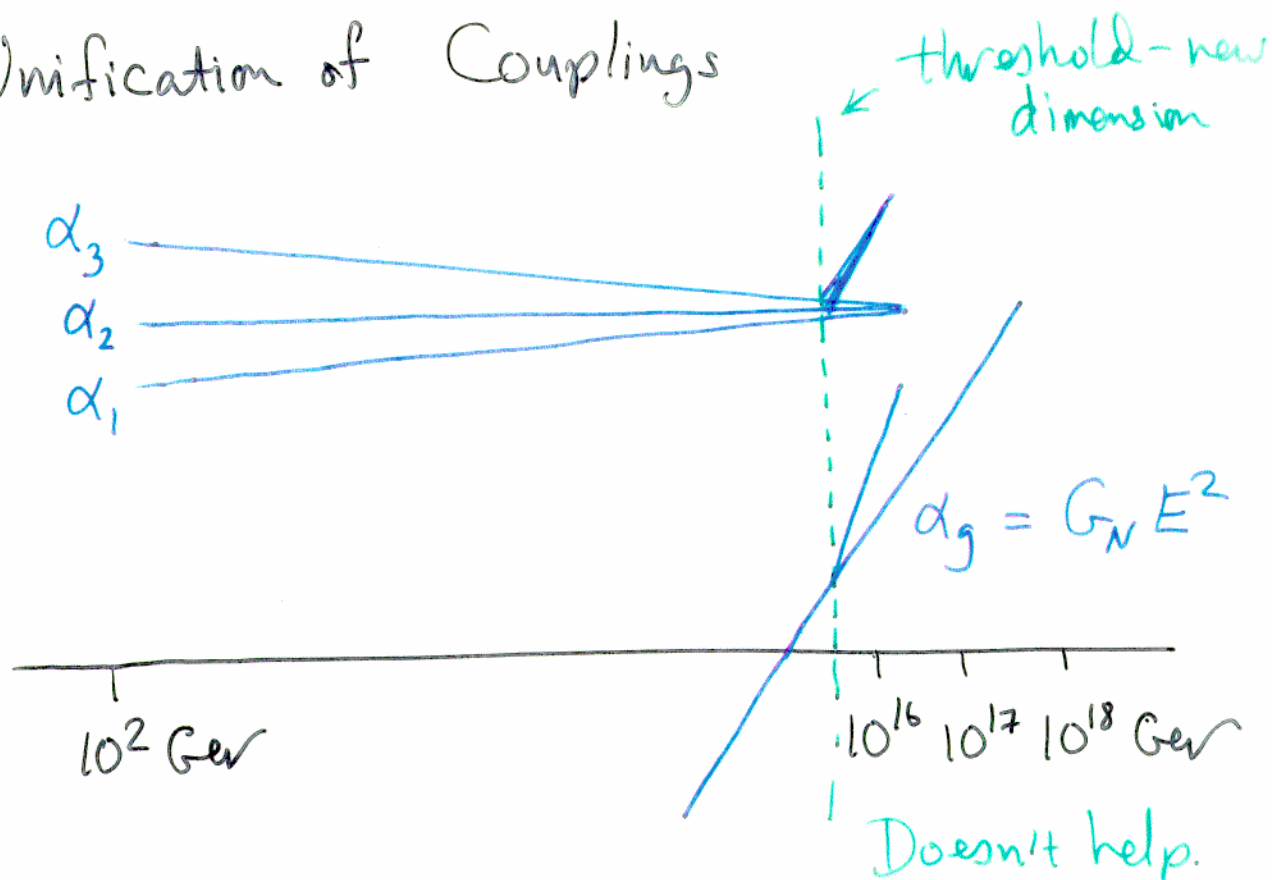 Unification of Couplings
threshold-new
dimension
α₃
α₂
α₁
α_g = G_N E²
10² GeV
10¹⁶ 10¹⁷ 10¹⁸ GeV
Doesn't help.